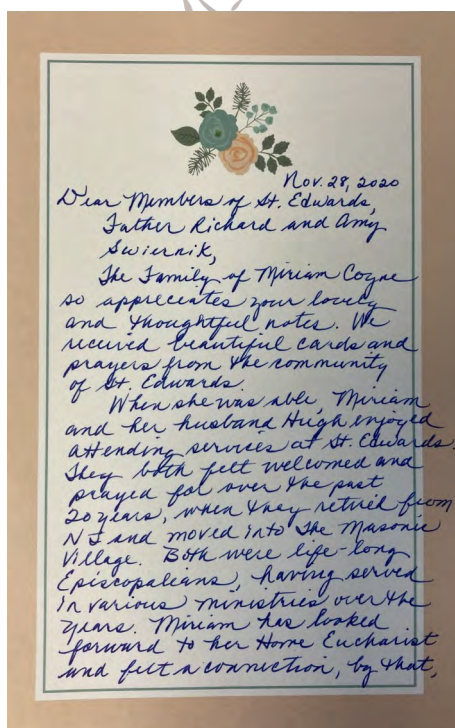 Nov. 28, 2020
Dear Members of St. Edwards,
Father Richard and Amy
Swiernik,
The Family of Miriam Coyne
so appreciates your lovely
and thoughtful notes. We
received beautiful cards and
prayers from the community
of St. Edwards.
When she was able, Miriam
and her husband Hugh enjoyed
attending services at St. Edwards.
They both felt welcomed and
prayed for over the past
20 years, when they retired from
NJ and moved into The Masonic
Village. Both were life-long
Episcopalians, having served
in various ministries over the
years. Miriam has looked
forward to her Home Eucharist
and felt a connection, by that,